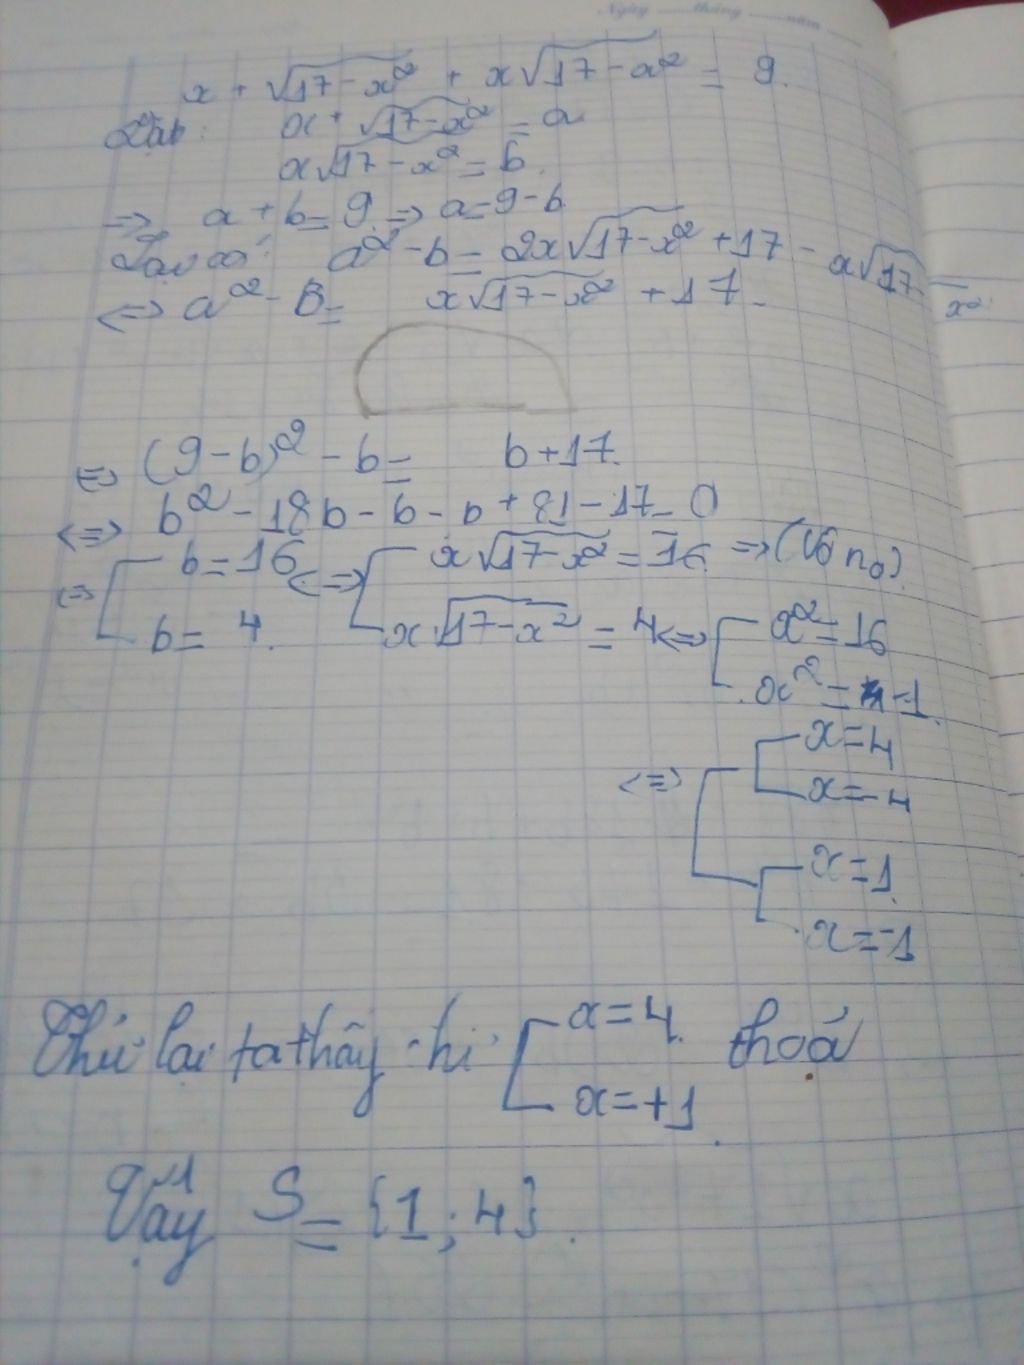 Ngày ......tháng ......năm ......
x + √(17 - x²) + x√(17 - x²) = 9.
Đặt: x + √(17 - x²) = a
x√(17 - x²) = b.
=> a + b = 9 => a = 9 - b
Ta có: a² - b = 2x√(17 - x²) + 17 - x√(17 - x²)
<=> a² - B = x√(17 - x²) + 17.
<=> (9 - b)² - b = b + 17.
<=> b² - 18b - b - b + 81 - 17 = 0
<=> [ b = 16 <=> [ x√(17 - x²) = 16 => (Vô no)
b = 4. x√(17 - x²) = 4 <=> [ x² = 16
x² = 1.
<=> [ [ x = 4
x = -4
[ x = 1
x = -1
Thử lại ta thấy chỉ [ x = 4 thoả
x = +1.
Vậy S = {1; 4}.